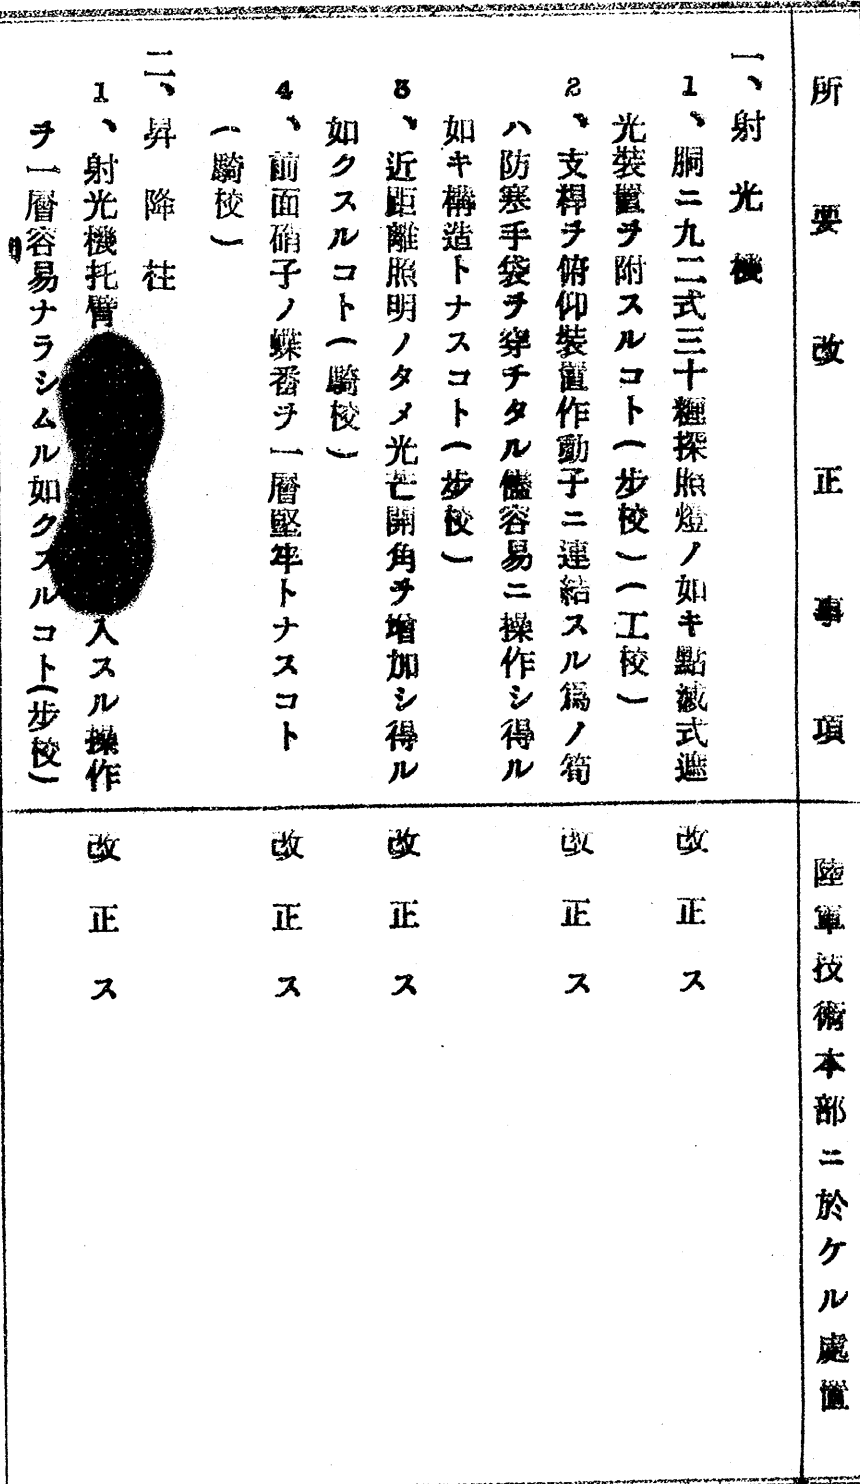 所要改正事項
陸軍技術本部ニ於ケル處置
一、射光機
1、胴ニ九二式三十糎探照燈ノ如キ點滅式遮
光裝置ヲ附スルコト(步校)(工校)
改正ス
2、支桿ヲ俯仰裝置作動子ニ連結スル爲ノ筍
ハ防寒手袋ヲ穿チタル儘容易ニ操作シ得ル
如キ構造トナスコト(步校)
改正ス
3、近距離照明ノタメ光芒開角ヲ增加シ得ル
如クスルコト(騎校)
改正ス
4、前面硝子ノ蝶番ヲ一層堅牢トナスコト
(騎校)
改正ス
二、昇降柱
1、射光機托臂入スル操作
ヲ一層容易ナラシムル如クスルコト(步校)
改正ス